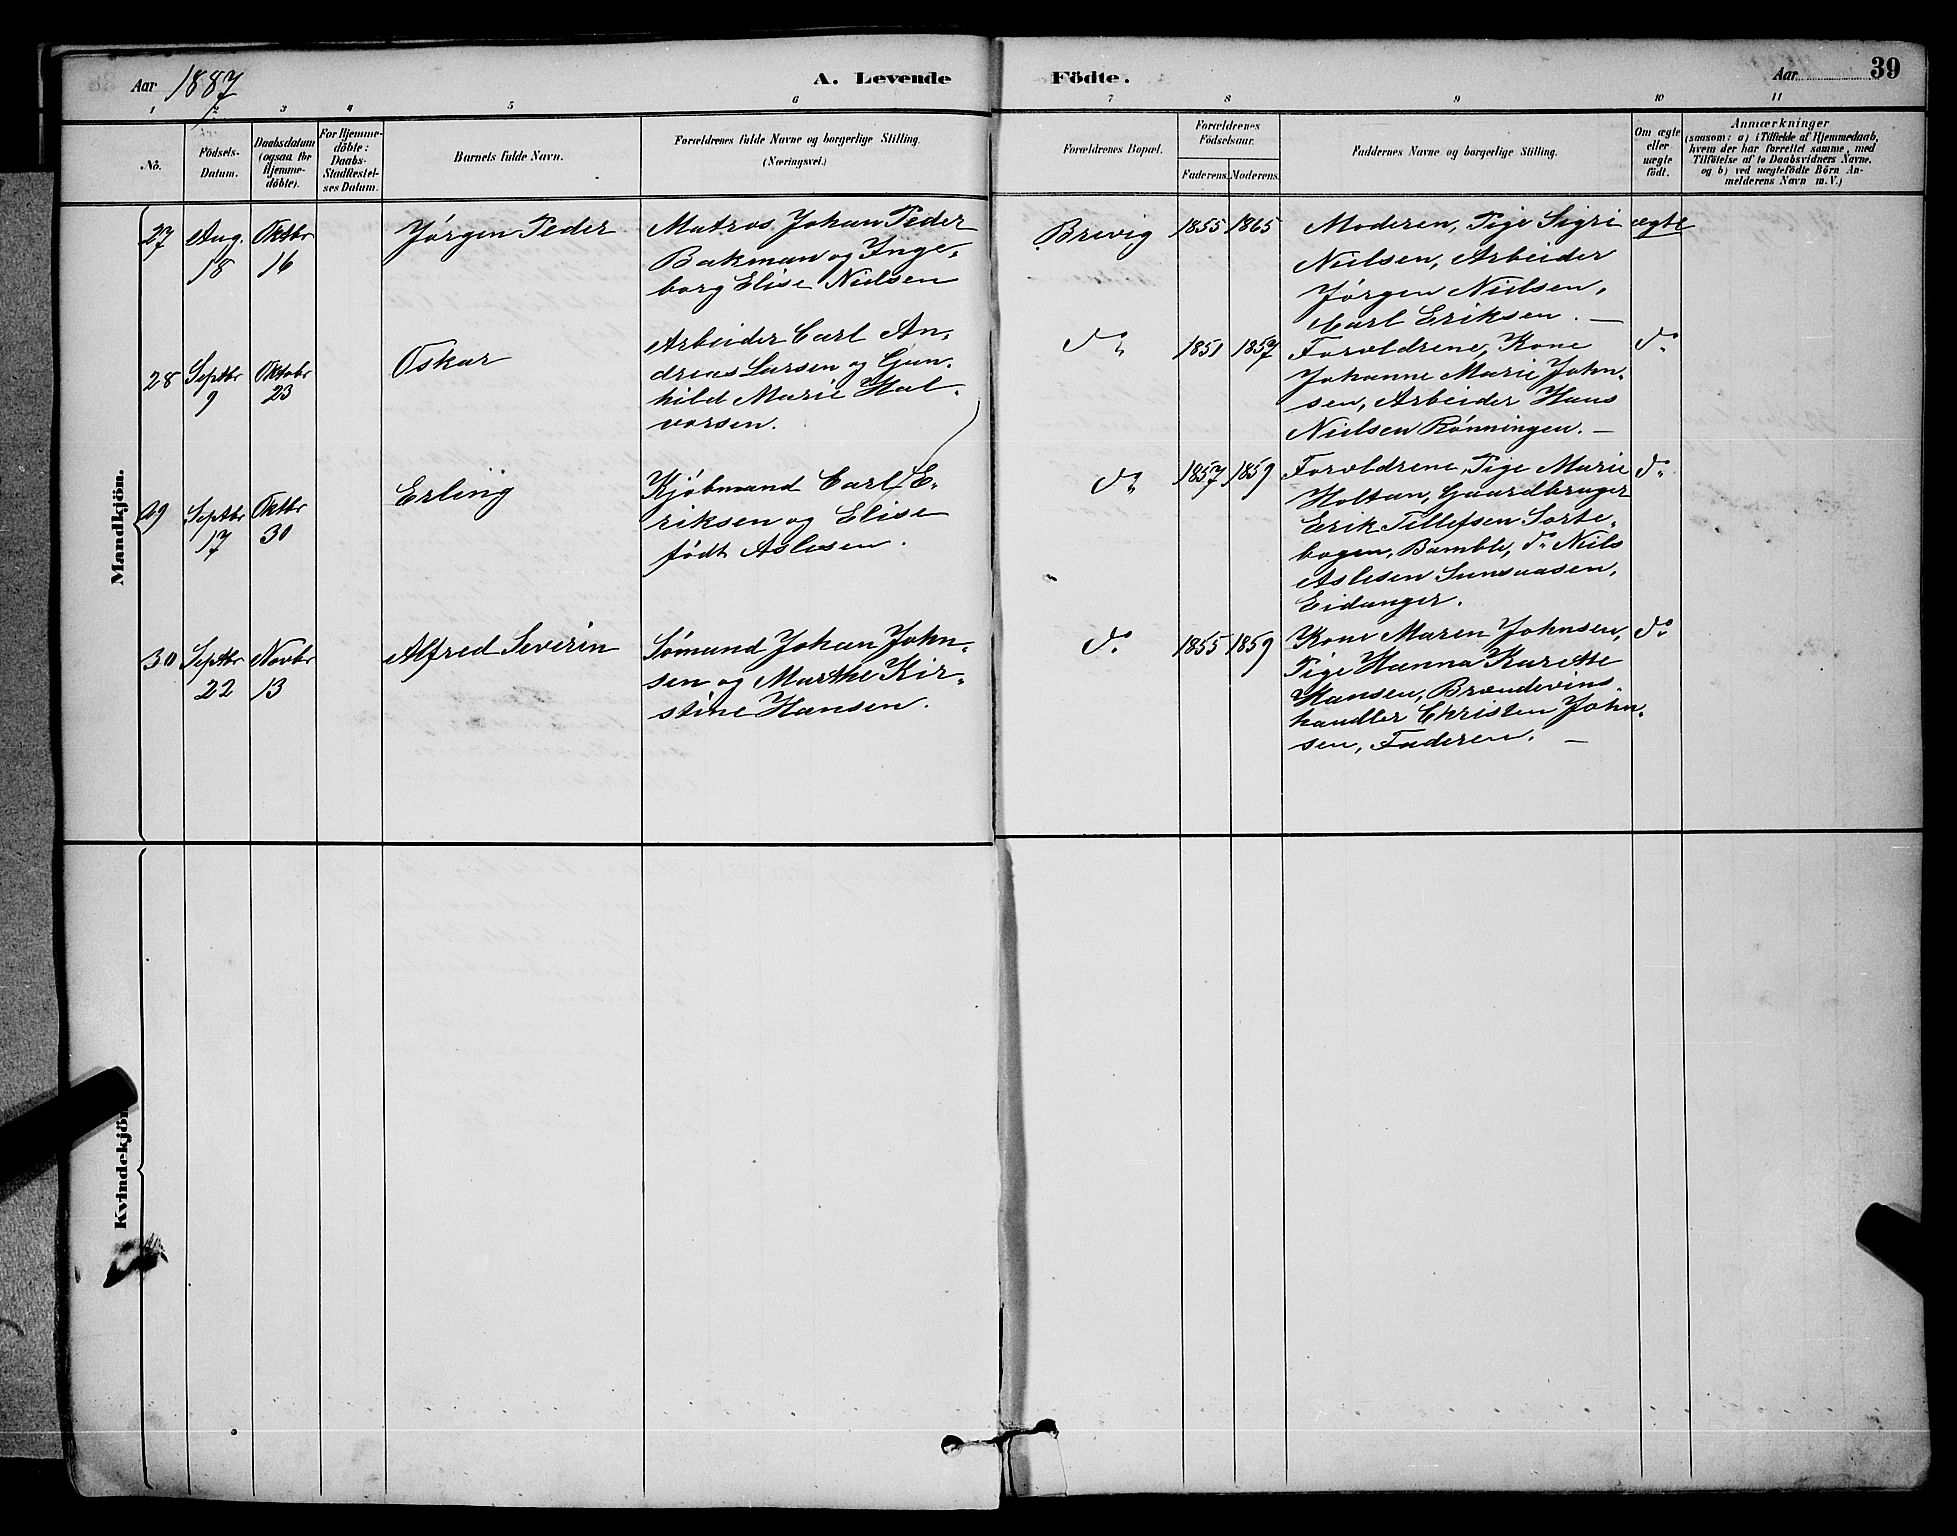 Aar 1887
A. Levende Födte.
Aar 39
1 2 3 4 5 6 7 8 9 10 11
No.
Födsels-
Datum.
Daabsdatum
(ogsaa for
Hjemme-
döbte).
For Hjemme-
döbte:
Daabs-
Stadfæstel-
ses Datum.
Barnets fulde Navn.
Forældrenes fulde Navne og borgerlige Stilling.
(Næringsvei.)
Forældrenes Bopæl.
Forældrenes
Födselsaar.
Faderens. Moderens.
Faddernes Navne og borgerlige Stilling.
Om ægte
eller
uægte
født.
Anmærkninger
(saasom: a) i Tilfælde af Hjemmedaab,
hvem der har forrettet samme, med
Tilföielse af to Daabsvidners Navne,
og b) ved uægtefödte Börn An-
melderens Navn m. V.)
Mandkjön.
27
Aug.
18
Oktbr
16
Jørgen Peder
Matros Johan Peder
Bakman og Inge-
borg Elise Nielsen
Brevig
1855 1865
Moderen, Pige Sigri
Nielsen, Arbeider
Jørgen Nielsen,
Carl Eriksen. —
ægte
28
Septbr
9
Oktobr
23
Oskar
Arbeider Carl An-
dreas Larsen og Gun-
hild Marie Hal-
vorsen.
do
1851 1857
Forældrene, Kone
Johanne Marie John-
sen, Arbeider Hans
Nielsen Rønningen. —
do
29
Septbr
17
Oktbr
30
Erling
Kjøbmand Carl E-
riksen og Elise
født Aslesen.
do
1857 1859
Forældrene, Pige Marie
Holtan, Gaardbruger
Erik Tillefsen Sorte-
bogen, Bamble, do Niels
Aslesen Sunsaasen,
Eidanger.
do
30
Septbr
22
Novbr
13
Alfred Severin
Sømand Johan John-
sen og Marthe Kir-
stine Hansen.
do
1855 1859
Kone Maren Johnsen,
Pige Hanna Karette
Hansen, Brændevins-
handler Christen John-
sen, Faderen. —
do
Kvindekjön